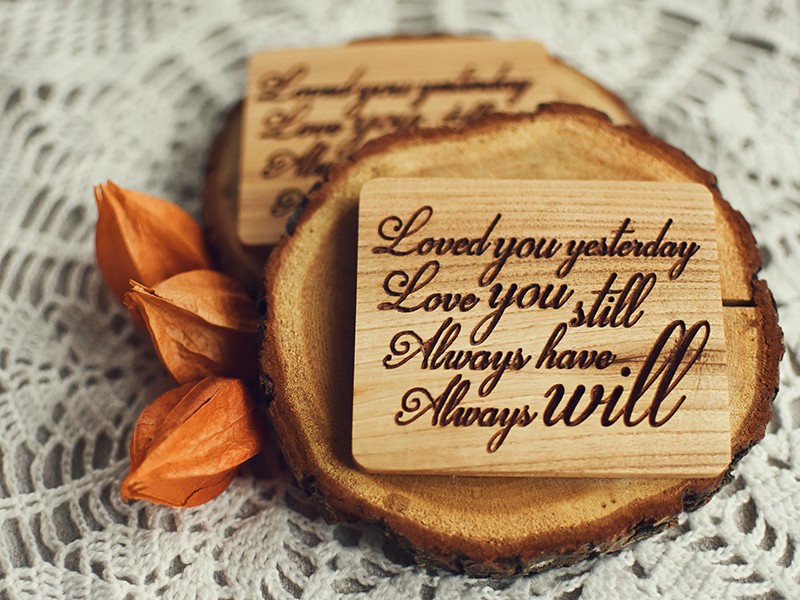 Loved you yesterday
Love you still
Always have
Always will
Loved you yesterday
Love you still